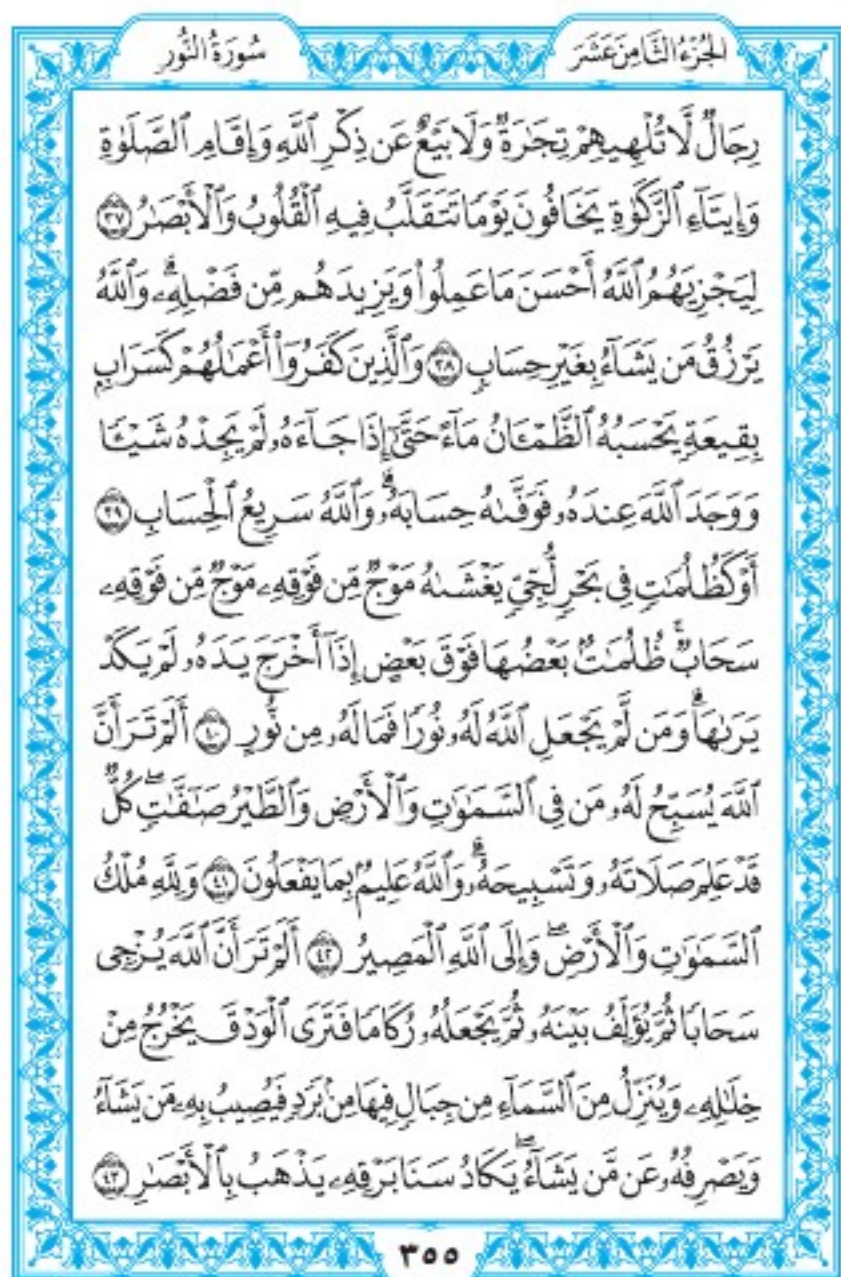 الجُزْءُ الثَّامِنَ عَشَرَ
سُورَةُ النُّور
رِجَالٌ لَّا تُلْهِيهِمْ تِجَٰرَةٌ وَلَا بَيْعٌ عَن ذِكْرِ ٱللَّهِ وَإِقَامِ ٱلصَّلَوٰةِ
وَإِيتَآءِ ٱلزَّكَوٰةِ يَخَافُونَ يَوْمًا تَتَقَلَّبُ فِيهِ ٱلْقُلُوبُ وَٱلْأَبْصَٰرُ ٣٧
لِيَجْزِيَهُمُ ٱللَّهُ أَحْسَنَ مَا عَمِلُوا۟ وَيَزِيدَهُم مِّن فَضْلِهِۦۗ وَٱللَّهُ
يَرْزُقُ مَن يَشَآءُ بِغَيْرِ حِسَابٍ ٣٨ وَٱلَّذِينَ كَفَرُوٓا۟ أَعْمَٰلُهُمْ كَسَرَابٍۭ
بِقِيعَةٍ يَحْسَبُهُ ٱلظَّمْـَٔانُ مَآءً حَتَّىٰٓ إِذَا جَآءَهُۥ لَمْ يَجِدْهُ شَيْـًٔا
وَوَجَدَ ٱللَّهَ عِندَهُۥ فَوَفَّىٰهُ حِسَابَهُۥۗ وَٱللَّهُ سَرِيعُ ٱلْحِسَابِ ٣٩
أَوْ كَظُلُمَٰتٍ فِى بَحْرٍ لُّجِّىٍّ يَغْشَىٰهُ مَوْجٌ مِّن فَوْقِهِۦ مَوْجٌ مِّن فَوْقِهِۦ
سَحَابٌۚ ظُلُمَٰتٌۢ بَعْضُهَا فَوْقَ بَعْضٍ إِذَآ أَخْرَجَ يَدَهُۥ لَمْ يَكَدْ
يَرَىٰهَاۗ وَمَن لَّمْ يَجْعَلِ ٱللَّهُ لَهُۥ نُورًا فَمَا لَهُۥ مِن نُّورٍ ٤٠ أَلَمْ تَرَ أَنَّ
ٱللَّهَ يُسَبِّحُ لَهُۥ مَن فِى ٱلسَّمَٰوَٰتِ وَٱلْأَرْضِ وَٱلطَّيْرُ صَٰٓفَّٰتٍۖ كُلٌّ
قَدْ عَلِمَ صَلَاتَهُۥ وَتَسْبِيحَهُۥۗ وَٱللَّهُ عَلِيمٌۢ بِمَا يَفْعَلُونَ ٤١ وَلِلَّهِ مُلْكُ
ٱلسَّمَٰوَٰتِ وَٱلْأَرْضِۖ وَإِلَى ٱللَّهِ ٱلْمَصِيرُ ٤٢ أَلَمْ تَرَ أَنَّ ٱللَّهَ يُزْجِى
سَحَابًا ثُمَّ يُؤَلِّفُ بَيْنَهُۥ ثُمَّ يَجْعَلُهُۥ رُكَامًا فَتَرَى ٱلْوَدْقَ يَخْرُجُ مِنْ
خِلَٰلِهِۦ وَيُنَزِّلُ مِنَ ٱلسَّمَآءِ مِن جِبَالٍ فِيهَا مِنۢ بَرَدٍ فَيُصِيبُ بِهِۦ مَن يَشَآءُ
وَيَصْرِفُهُۥ عَن مَّن يَشَآءُۖ يَكَادُ سَنَا بَرْقِهِۦ يَذْهَبُ بِٱلْأَبْصَٰرِ ٤٣
٣٥٥